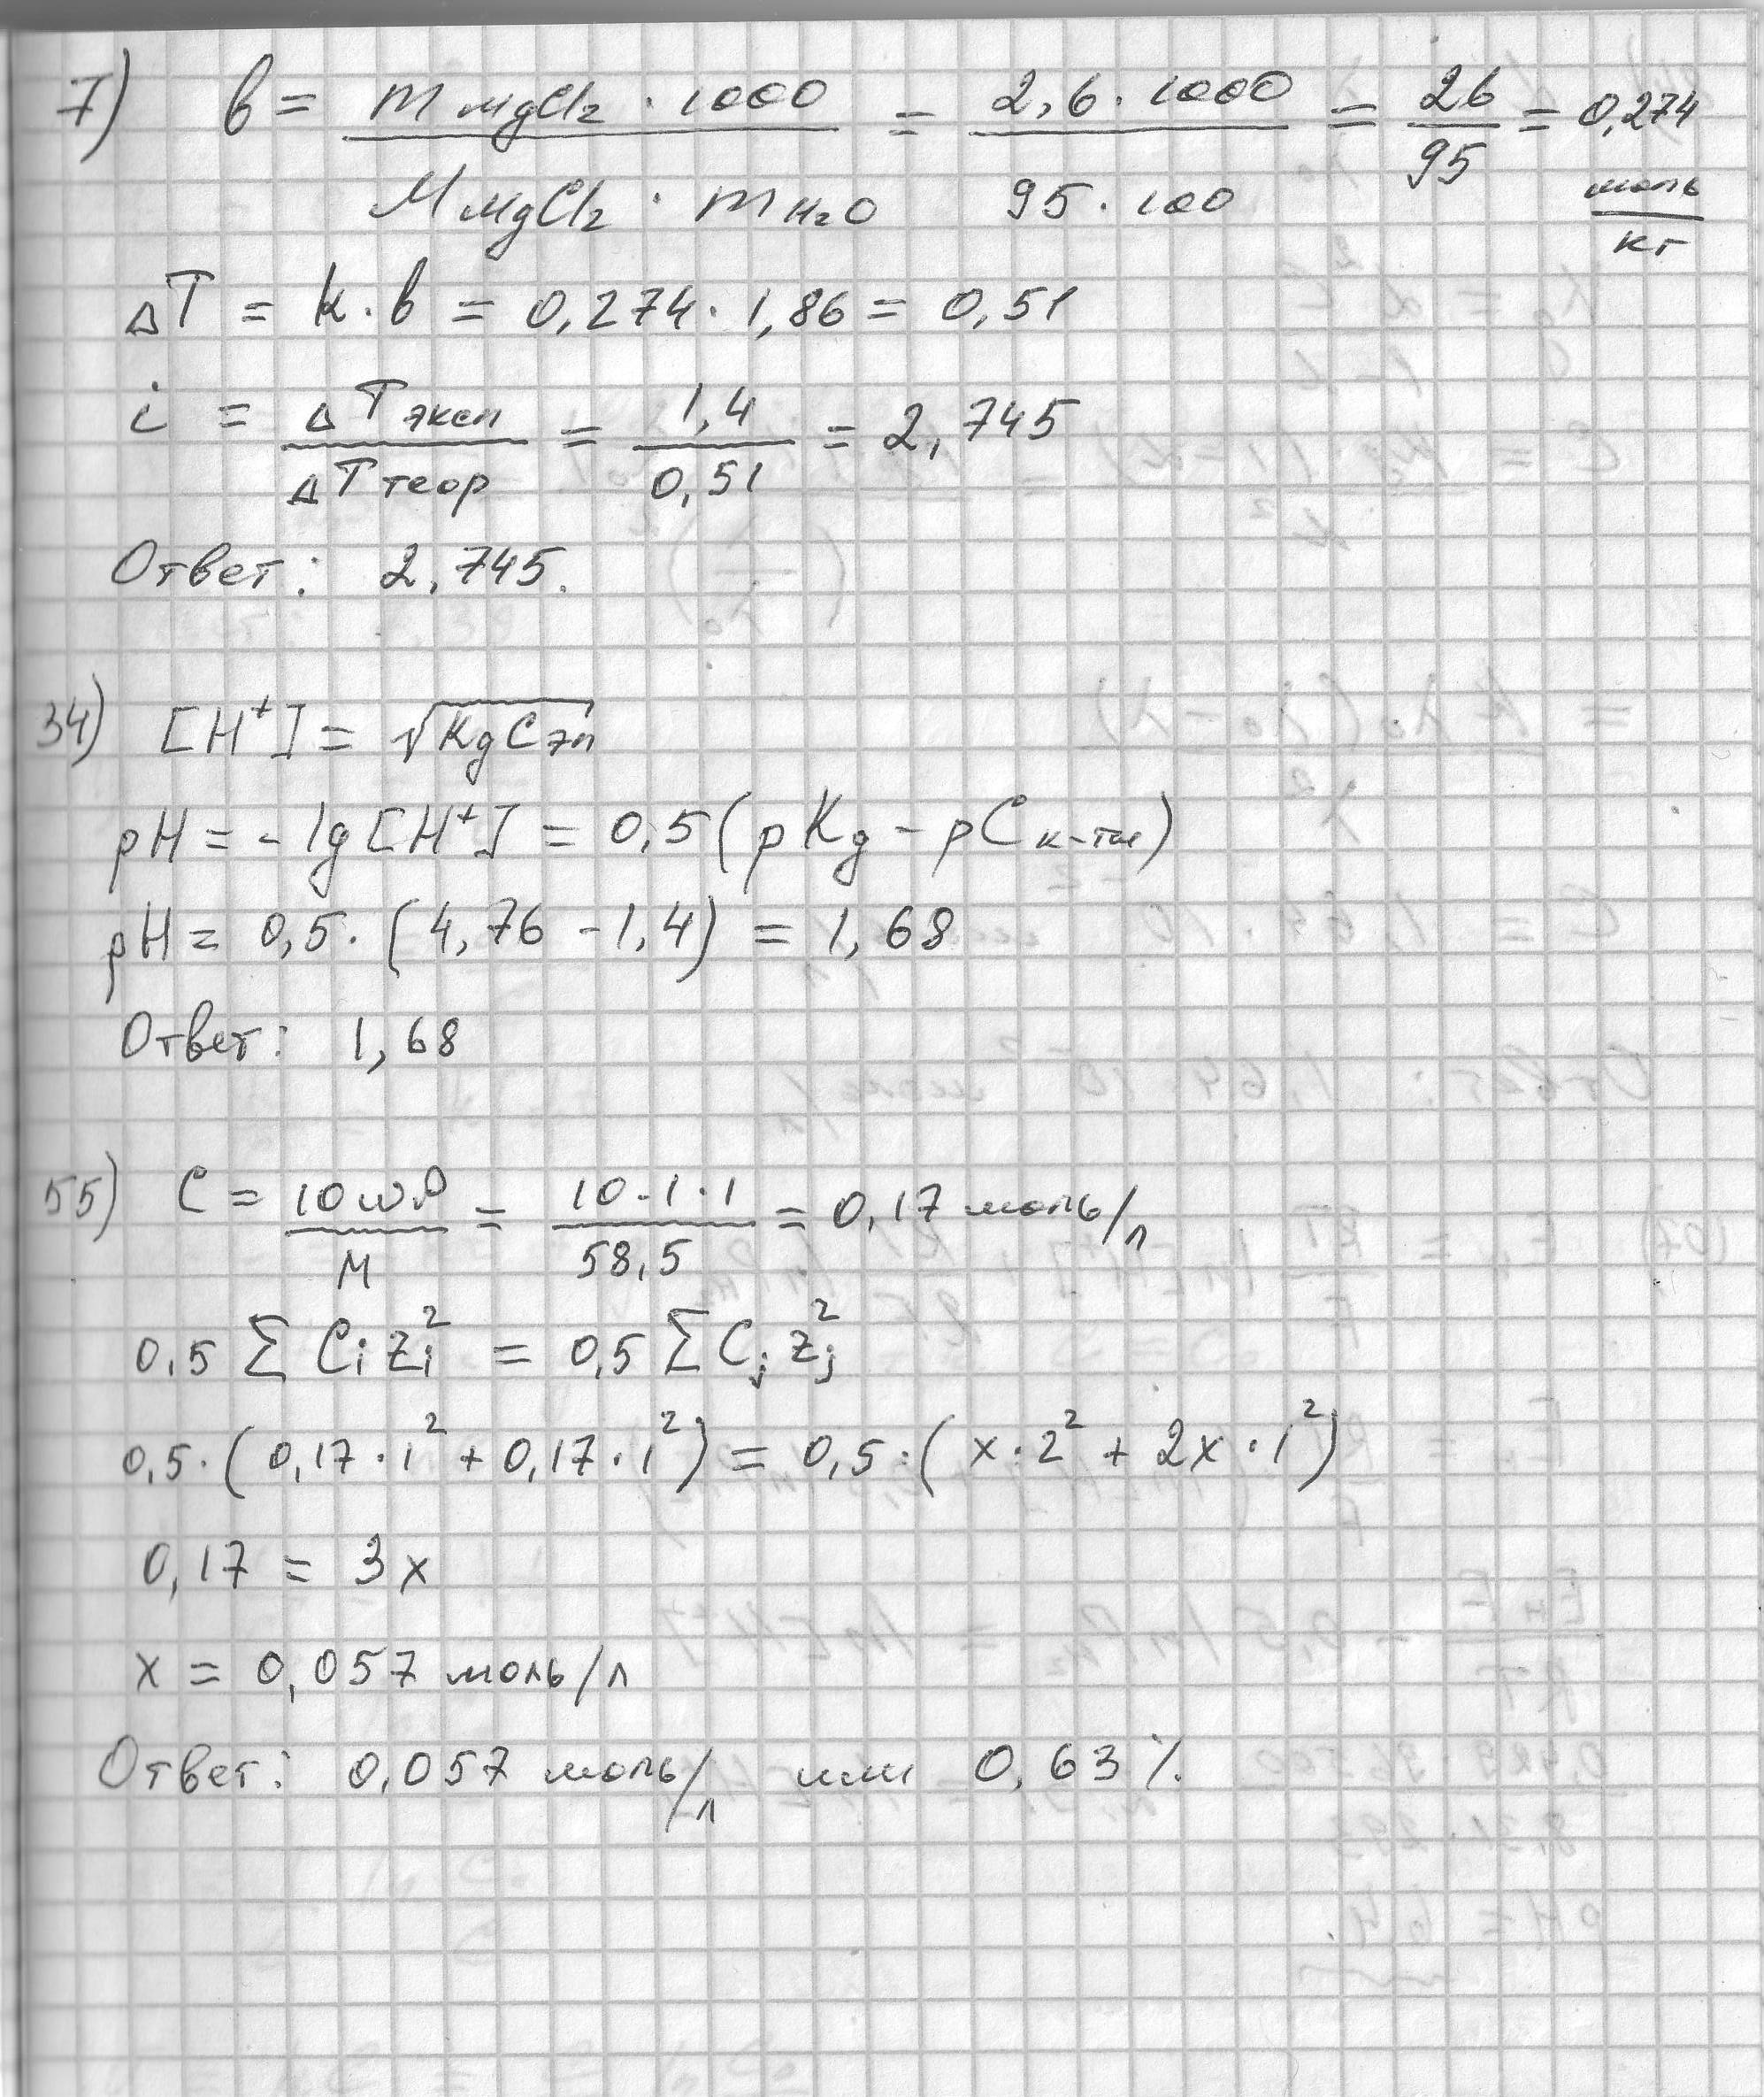 7) b = m MgCl₂ · 1000 / M MgCl₂ · m H₂O = 2,6 · 1000 / 95 · 100 = 26 / 95 = 0,274 моль / кг
ΔT = k · b = 0,274 · 1,86 = 0,51
i = ΔT эксп / ΔT теор = 1,4 / 0,51 = 2,745
Ответ: 2,745.
34) [H⁺] = √Kg C эл
pH = - lg [H⁺] = 0,5 (pKg - pC к-ты)
pH = 0,5 · (4,76 - 1,4) = 1,68
Ответ: 1,68
55) C = 10ωρ / M = 10 · 1 · 1 / 58,5 = 0,17 моль/л
0,5 Σ Ci zi² = 0,5 Σ Cj zj²
0,5 · (0,17 · 1² + 0,17 · 1²) = 0,5 · (x · 2² + 2x · 1²)
0,17 = 3x
x = 0,057 моль/л
Ответ: 0,057 моль/л или 0,63 %.